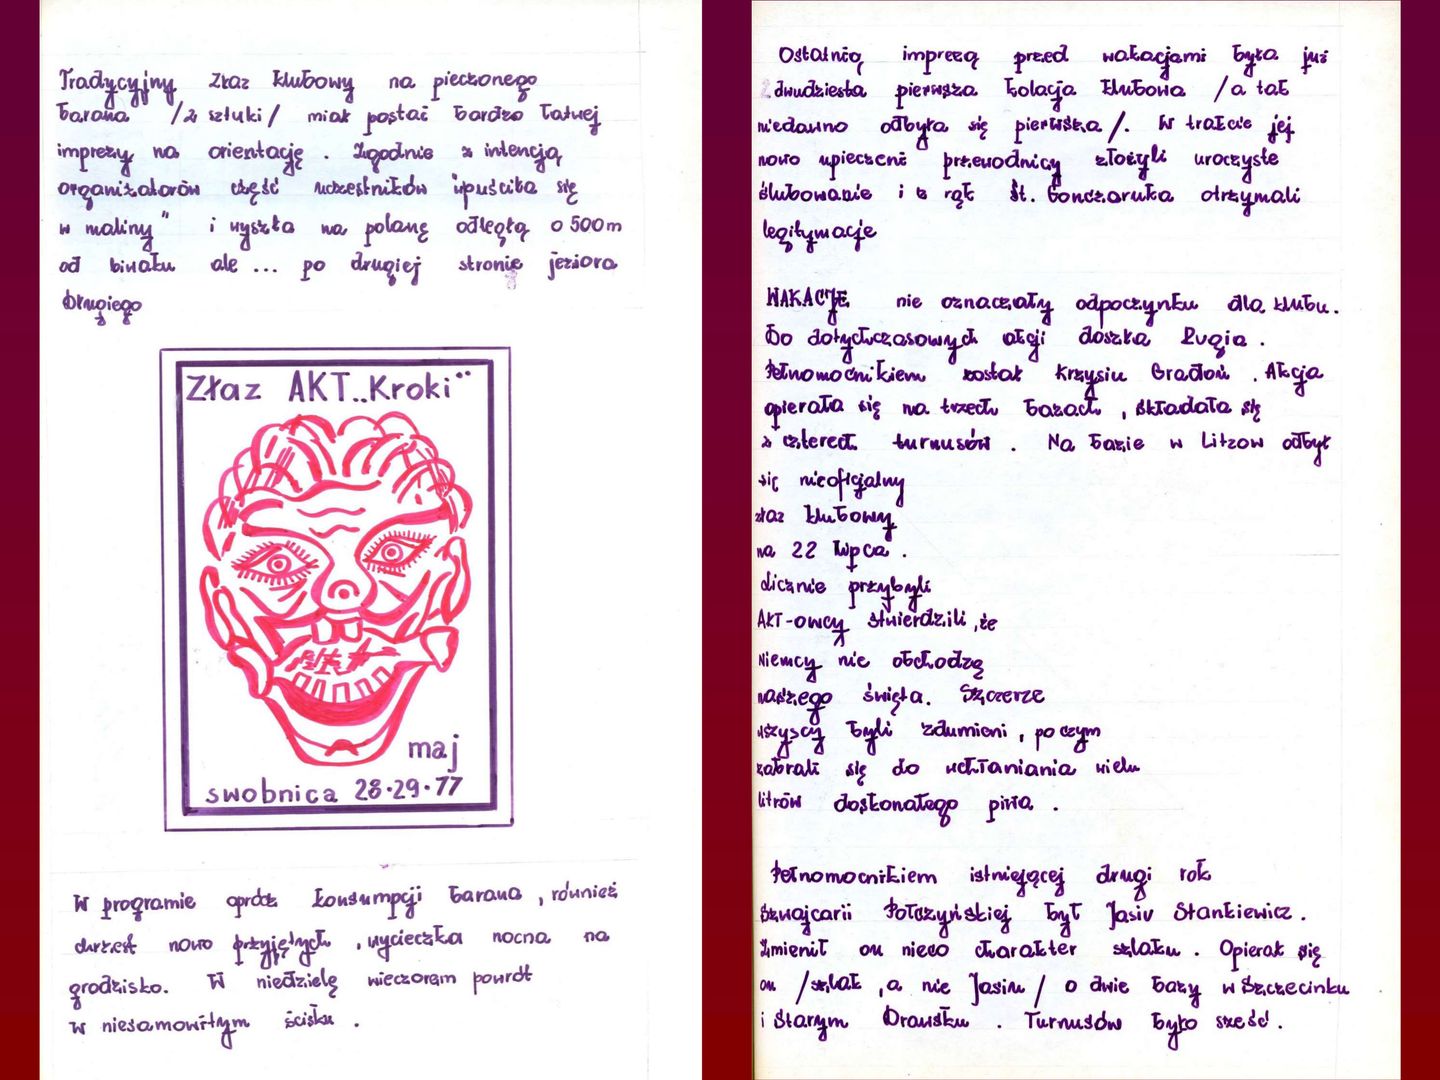 Tradycyjny Złaz klubowy na pieczonego
barana /2 sztuki/ miał postać bardzo łatwej
imprezy na orientację. Zgodnie z intencją
organizatorów część uczestników "wpuściła się
w maliny" i wyszła na polanę odległą o 500m
od biwaku ale ... po drugiej stronie jeziora
Długiego
Złaz AKT „Kroki"
maj
swobnica 28-29.77
W programie oprócz konsumpcji barana, również
chrzest nowo przyjętych, wycieczka nocna na
grodzisko. W niedzielę wieczorem powrót
w niesamowitym ścisku.
Ostatnią imprezą przed wakacjami była już
dwudziesta pierwsza kolacja klubowa /a tak
niedawno odbyła się pierwsza/. W trakcie jej
nowo upieczeni przewodnicy złożyli uroczyste
ślubowanie i z rąk St. Gonczaruka otrzymali
legitymacje
WAKACJE nie oznaczały odpoczynku dla klubu.
Do dotychczasowych akcji doszła Rugia.
Pełnomocnikiem został Krzysiu Bradtoń. Akcja
opierała się na trzech bazach, składała się
z czterech turnusów. Na bazie w Litzow odbył
się nieoficjalny
złaz klubowy
na 22 lipca.
Licznie przybyli
AKT-owcy stwierdzili, że
Niemcy nie obchodzą
naszego święta. Szczerze
wszyscy byli zdumieni, po czym
zabrali się do uchłaniania wielu
litrów doskonałego piwa.
Pełnomocnikiem istniejącej drugi rok
Szwajcarii Połczyńskiej był Jasiu Stankiewicz.
Zmienił on nieco charakter szlaku. Opierał się
on /szlak, a nie Jasiu/ o dwie bazy w Szczecinku
i Starym Drawsku. Turnusów było sześć.